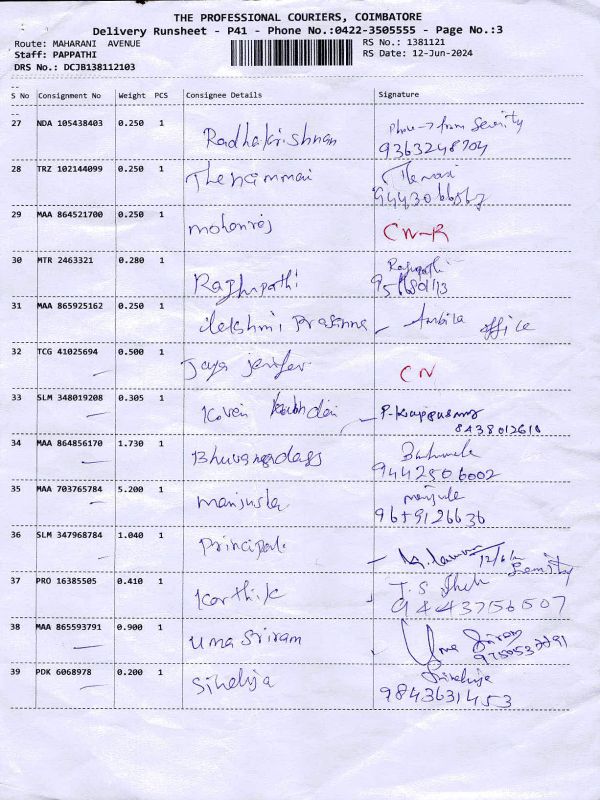 THE PROFESSIONAL COURIERS, COIMBATORE
Delivery Runsheet - P41 - Phone No.:0422-3505555 - Page No.:3
Route: MAHARANI AVENUE RS No.: 1381121
Staff: PAPPATHI RS Date: 12-Jun-2024
DRS No.: DCJB138112103
--
S No Consignment No Weight PCS Consignee Details Signature
--
27 NDA 105438403 0.250 1 Radhakrishnan Phone → from Security
9363248704
28 TRZ 102144099 0.250 1 Thenammai
29 MAA 864521700 0.250 1 mohanraj CN-R
30 MTR 2463321 0.280 1 Raghupathi Ragupathi
31 MAA 865925162 0.250 1 Prasanna office
32 TCG 41025694 0.500 1 Jaya jenifer CN
33 SLM 348019208 0.305 1 Kaven P. Kuppusamy
8438012618
34 MAA 864856170 1.730 1
9442506002
35 MAA 703765784 5.200 1 manjula manjula
9659126636
36 SLM 347968784 1.040 1 Principal 12/6/24
37 PRO 16385505 0.410 1 Karthik T.S
9443756507
38 MAA 865593791 0.900 1 Uma Sriram Uma Sriram
39 PDK 6068978 0.200 1
9843631453